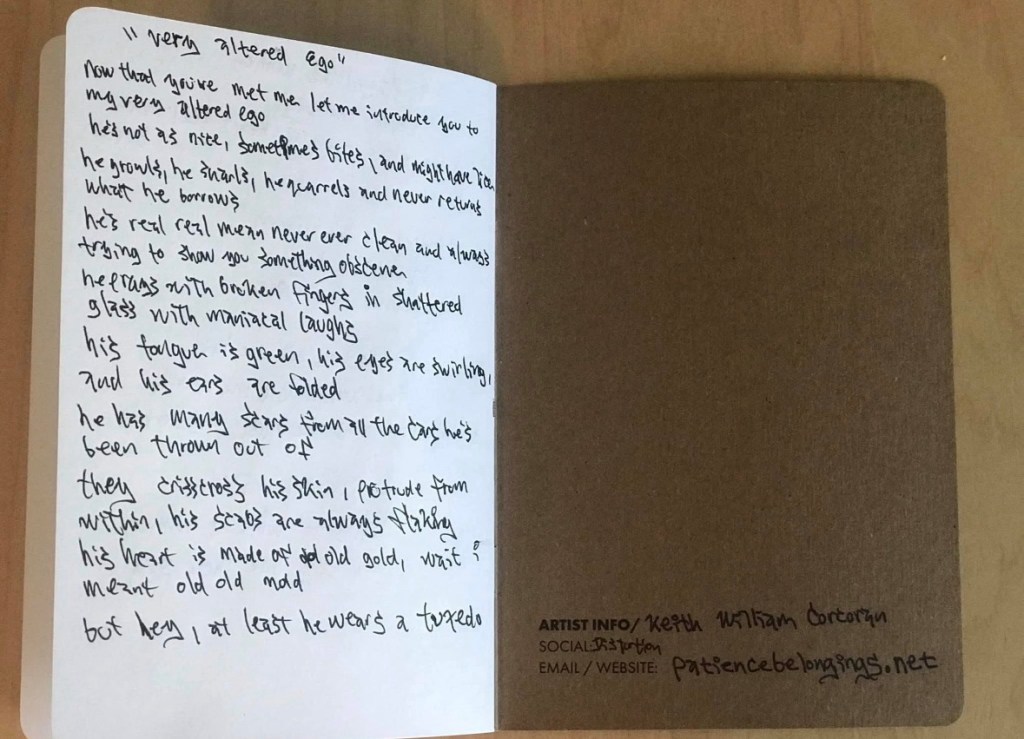 "very altered ego"
now that you've met me, let me introduce you to
my very altered ego
he's not as nice, sometimes bites, and might have lice
he growls, he snarls, he quarrels and never returns
what he borrows
he's real real mean never ever clean and always
trying to show you something obscene
he prays with broken fingers in shattered
glass with maniacal laughs
his tongue is green, his eyes are swirling,
and his ears are folded
he has many scars from all the cars he's
been thrown out of
they crisscross his skin, protrude from
within, his scabs are always flaking
his heart is made of old gold, wait i
meant old old mold
but hey, at least he wears a tuxedo
ARTIST INFO/ Keith William Corcoran
SOCIAL: Distortion
EMAIL / WEBSITE: patiencebelongings.net